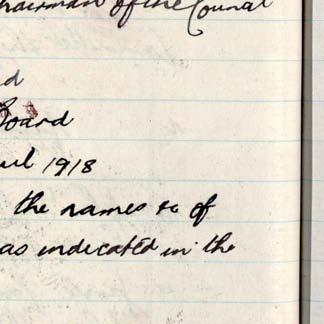 Chairman of the Council
d
Board
1918
the names &c of
as indicated in the